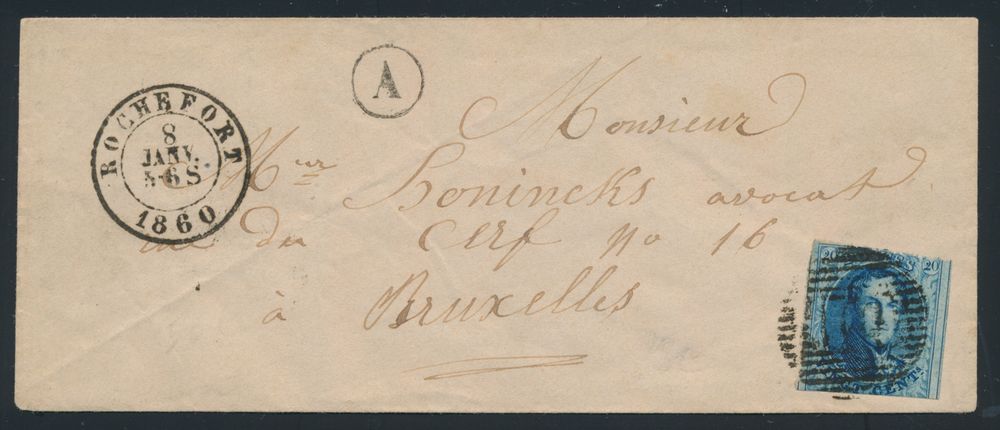 A
ROCHEFORT
8
JANV.
6S
1860
Monsieur
Mr
Honincks avocat
rue du Cerf no 16
à Bruxelles
20 20
CENTS